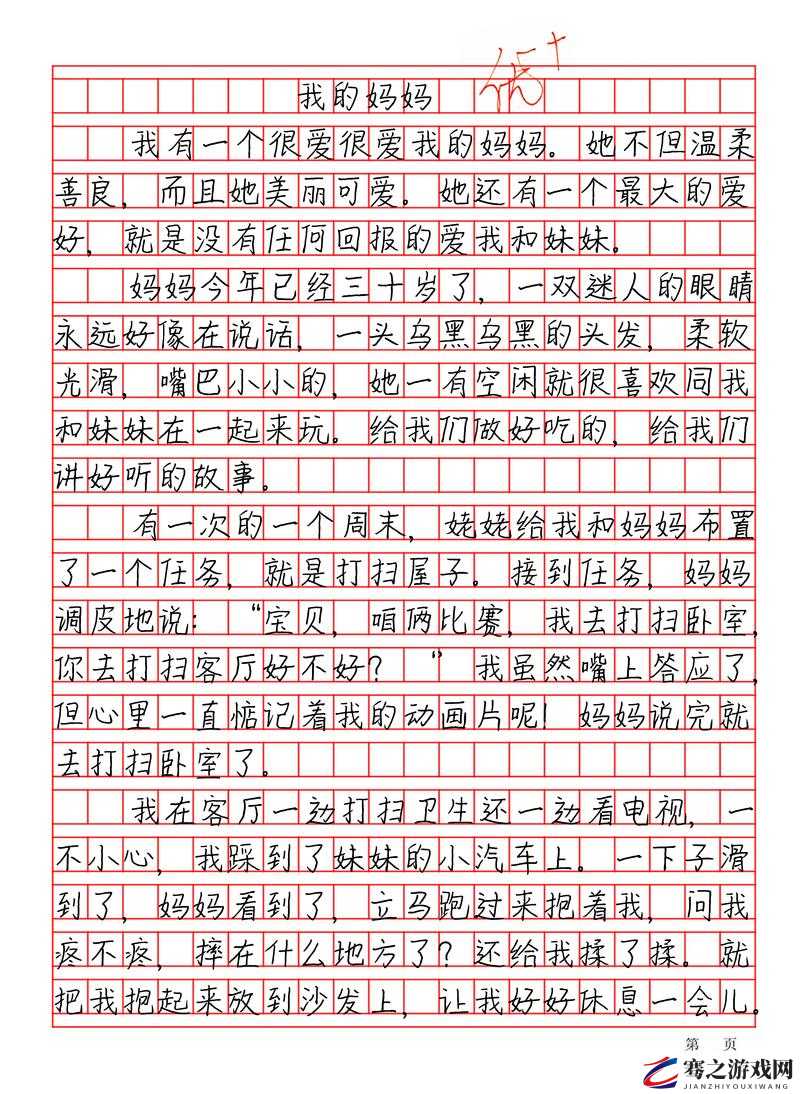 优+
我的妈妈
我有一个很爱很爱我的妈妈。她不但温柔
善良，而且她美丽可爱。她还有一个最大的爱
好，就是没有任何回报的爱我和妹妹。
妈妈今年已经三十岁了，一双迷人的眼睛
永远好像在说话，一头乌黑乌黑的头发，柔软
光滑，嘴巴小小的，她一有空闲就很喜欢同我
和妹妹在一起来玩。给我们做好吃的，给我们
讲好听的故事。
有一次的一个周末，姥姥给我和妈妈布置
了一个任务，就是打扫屋子。接到任务，妈妈
调皮地说：“宝贝，咱俩比赛，我去打扫卧室，
你去打扫客厅好不好？”我虽然嘴上答应了，
但心里一直惦记着我的动画片呢！妈妈说完就
去打扫卧室了。
我在客厅一边打扫卫生还一边看电视，一
不小心，我踩到了妹妹的小汽车上。一下子滑
到了，妈妈看到了，立马跑过来抱着我，问我
疼不疼，摔在什么地方了？还给我揉了揉。就
把我抱起来放到沙发上，让我好好休息一会儿。
第 页
骞之游戏网
JIANZHIYOUXIWANG